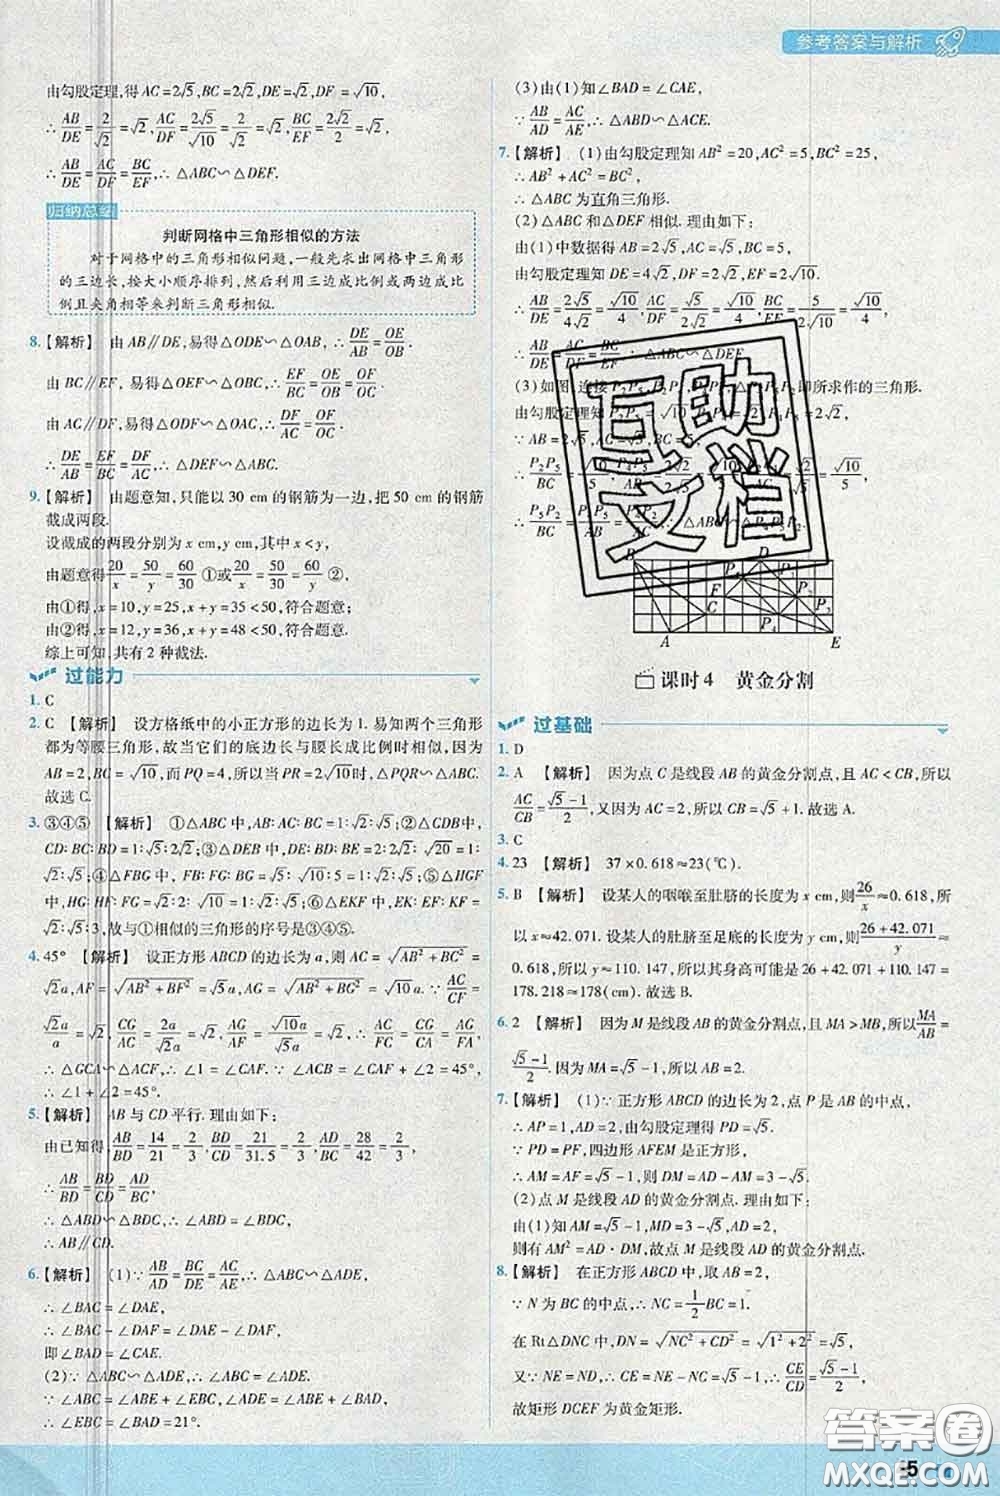 参考答案与解析
由勾股定理,得 AC=2√5,BC=2√2,DE=√2,DF=√10,
∴ AB/DE=2/√2=√2,AC/DF=2√5/√10=2/√2=√2,BC/EF=2√2/2=√2,
∴ AB/DE=AC/DF=BC/EF,∴ △ABC∽△DEF.
归纳总结
判断网格中三角形相似的方法
对于网格中的三角形相似问题,一般先求出网格中三角形
的三边长,按大小顺序排列,然后利用三边成比例或两边成比
例且夹角相等来判断三角形相似.
8.【解析】 由 AB∥DE,易得△ODE∽△OAB,∴ DE/AB=OE/OB.
由 BC∥EF,易得△OEF∽△OBC,∴ EF/BC=OE/OB=OF/OC.
由 AC∥DF,易得△ODF∽△OAC,∴ DF/AC=OF/OC.
∴ DE/AB=EF/BC=DF/AC,∴ △DEF∽△ABC.
9.【解析】 由题意知,只能以 30 cm 的钢筋为一边,把 50 cm 的钢筋
截成两段.
设截成的两段分别为 x cm,y cm,其中 x<y,
由题意得 20/x=50/y=60/30 ①或 20/30=50/x... 
由①得,x=10,y=25,x+y=35<50,符合题意;
由②得,x=12,y=36,x+y=48<50,符合题意.
综上可知,共有 2 种截法.
过能力
1. C
2. C 【解析】 设方格纸中的小正方形的边长为 1. 易知两个三角形
都为等腰三角形,故当它们的底边长与腰长成比例时相似,因为
AB=2,BC=√10,而 PQ=4,所以当 PR=2√10时,△PQR∽△ABC.
故选 C.
3. ③④⑤ 【解析】 ①△ABC 中,AB∶AC∶BC=1∶√2∶√5;②△CDB中,
CD∶BC∶BD=1∶√5∶2√2;③△DEB 中,DE∶BD∶BE=2∶2√2∶√20=1∶
√2∶√5;④△FBG 中,FB∶FG∶BG=1∶√2∶√5;⑤△HGF
中,HG∶HF∶FG=√2∶2∶√10=1∶√2∶√5;⑥△EKF 中,EK∶EF∶KF=
√2∶√5∶3,故与①相似的三角形的序号是③④⑤.
4. 45° 【解析】 设正方形 ABCD 的边长为 a,则 AC=√(AB²+BC²)=
√2a,AF=√(AB²+BF²)=√5a,AG=√(AB²+BG²)=√10a,∵ AC/CF=
√2a/a=√2,CG/AC=2a/√2a=√2,AG/AF=√10a/√5a=√2,∴ AC/FC=CG/CA=AG/FA,
∴ △GCA∽△ACF,∴ ∠1=∠CAF. ∵ ∠CAF+∠2=45°,
∴ ∠1+∠2=45°.
5.【解析】 AB 与 CD 平行. 理由如下:
由已知得,AB/BD=14/21=2/3,BD/CD=21/31.5=2/3,AD/BC=28/42=2/3,
∴ AB/BD=BD/CD=AD/BC,
∴ △ABD∽△BDC,∴ ∠ABD=∠BDC,
∴ AB∥CD.
6.【解析】 (1)∵ AB/AD=BC/DE=AC/AE,∴ △ABC∽△ADE,
∴ ∠BAC=∠DAE,
∴ ∠BAC-∠DAF=∠DAE-∠DAF,
即∠BAD=∠CAE.
(2)∵ △ABC∽△ADE,∴ ∠ABC=∠ADE.
∵ ∠ABC=∠ABE+∠EBC,∠ADE=∠ABE+∠BAD,
∴ ∠EBC=∠BAD=21°.
(3)由(1)知∠BAD=∠CAE,
∵ AB/AD=AC/AE,∴ △ABD∽△ACE.
7.【解析】 (1)由勾股定理知 AB²=20,AC²=5,BC²=25,
∴ AB²+AC²=BC²,
∴ △ABC 为直角三角形.
(2)△ABC 和△DEF 相似. 理由如下:
由(1)中数据得 AB=2√5,AC=√5,BC=5,
由勾股定理知 DE=4√2,DF=2√2,EF=2√10.
∴ AB/DE=2√5/4√2=√10/4,AC/DF=√5/2√2=√10/4,BC/EF=5/2√10=√10/4,
∴ AB/DE=AC/DF=BC/EF,∴ △ABC∽△DEF.
课时 4 黄金分割
过基础
1. D
2. A 【解析】 因为点 C 是线段 AB 的黄金分割点,且 AC<CB,所以
AC/CB=(√5-1)/2,又因为 AC=2,所以 CB=√5+1. 故选 A.
3. C
4. 23 【解析】 37×0.618≈23(℃).
5. B 【解析】 设某人的咽喉至肚脐的长度为 x cm,则 26/x≈0.618,所
以 x≈42.071. 设某人的肚脐至足底的长度为 y cm,则 (26+42.071)/y≈
0.618,所以 y≈110.147,所以其身高可能是 26+42.071+110.147=
178.218≈178(cm). 故选 B.
6. 2 【解析】 因为 M 是线段 AB 的黄金分割点,且 MA>MB,所以 MA/AB=
(√5-1)/2. 因为 MA=√5-1,所以 AB=2.
7.【解析】 (1)∵ 正方形 ABCD 的边长为 2,点 P 是 AB 的中点,
∴ AP=1,AD=2,由勾股定理得 PD=√5.
∵ PD=PF,四边形 AFEM 是正方形,
∴ AM=AF=√5-1,则 DM=AD-AM=3-√5.
(2)点 M 是线段 AD 的黄金分割点. 理由如下:
由(1)知 AM=√5-1,DM=3-√5,AD=2,
则有 AM²=AD·DM,故点 M 是线段 AD 的黄金分割点.
8.【解析】 在正方形 ABCD 中,取 AB=2.
∵ N 为 BC 的中点,∴ NC=1/2BC=1.
在 Rt△DNC 中,DN=√(NC²+CD²)=√(1²+2²)=√5.
又∵ NE=ND,∴ CE=NE-NC=√5-1,∴ CE/CD=(√5-1)/2,
故矩形 DCEF 为黄金矩形.
互助文档
答案圈
MXQE.COM